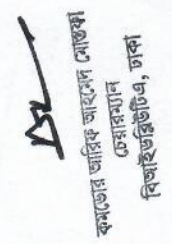 কমডোর আরিফ আহমেদ মোস্তফা
চেয়ারম্যান
বিআইডব্লিউটিএ, ঢাকা